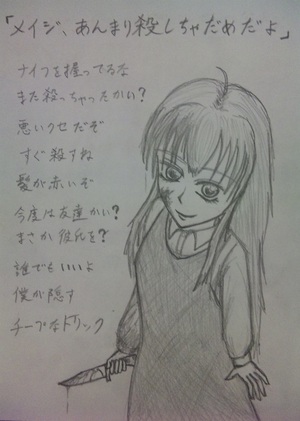 「メイジ、あんまり殺しちゃだめだよ」
ナイフを握ってるな
また殺っちゃったかい?
悪いクセだぞ
すぐ殺すね
髪が赤いぞ
今度は友達かい?
まさか彼氏を?
誰でもいいよ
僕が隠す
チープなトリック